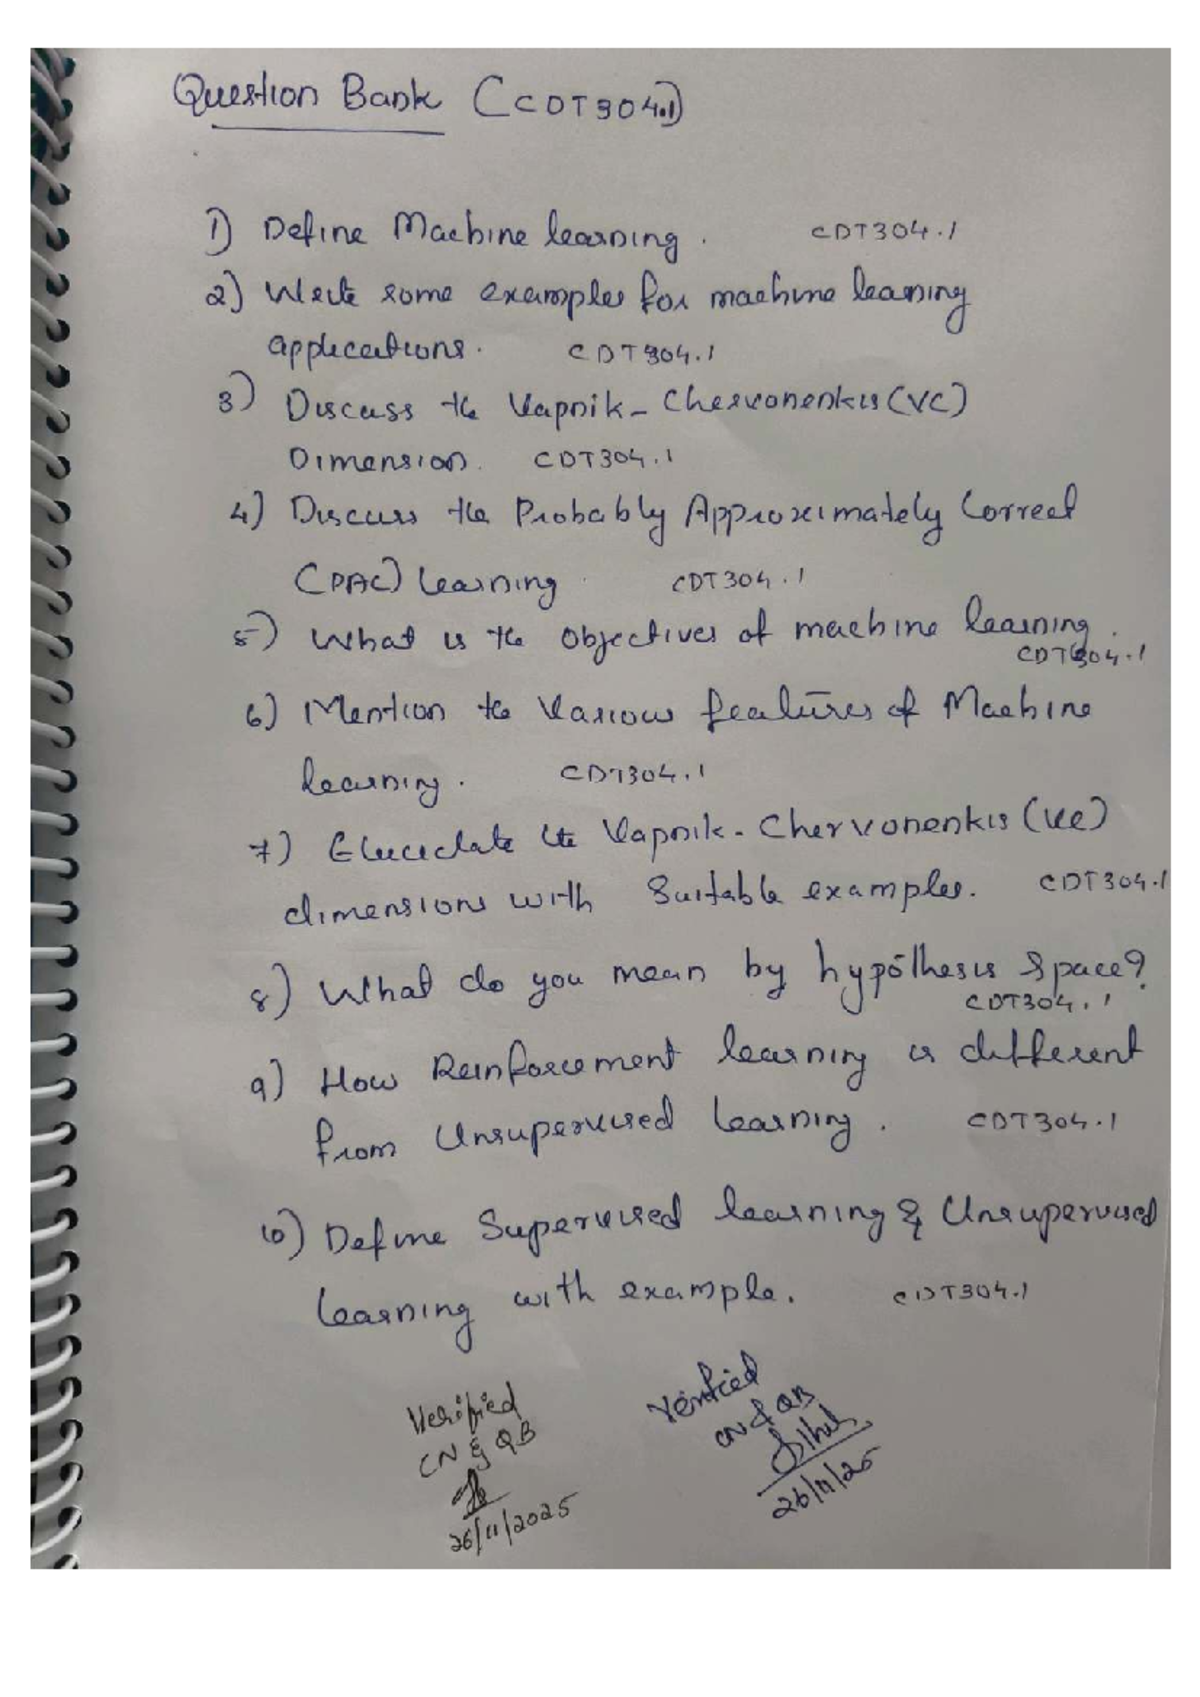 Question Bank (CDT304.1)
1) Define Machine learning. CDT304.1
2) Write some examples for machine learning
applications. CDT304.1
3) Discuss the Vapnik-Chervonenkis (VC)
Dimension. CDT304.1
4) Discuss the Probably Approximately Correct
(PAC) learning. CDT304.1
5) What is the objectives of machine learning.
CDT304.1
6) Mention the various features of Machine
learning. CDT304.1
7) Elucidate the Vapnik-Chervonenkis (VC)
dimensions with Suitable examples. CDT304.1
8) What do you mean by hypothesis space?
CDT304.1
9) How Reinforcement learning is different
from Unsupervised learning. CDT304.1
10) Define Supervised learning & Unsupervised
learning with example. CDT304.1
Verified
CN & QB
26/11/2025
Verified
CN & QB
26/11/25